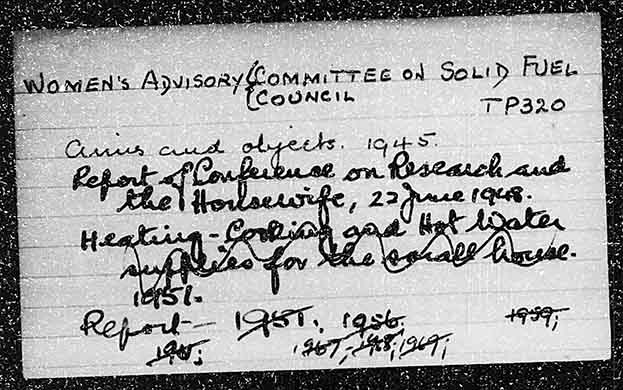 WOMEN'S ADVISORY { COMMITTEE ON SOLID FUEL
{ COUNCIL
TP320
Aims and objects. 1945.
Report of Conference on Research and
the Housewife, 22 June 1948.
Heating - Cooking and Hot Water
supplies for the small house.
1951.
Report - 1951; 1956; 1959;
1967; 1968; 1969;